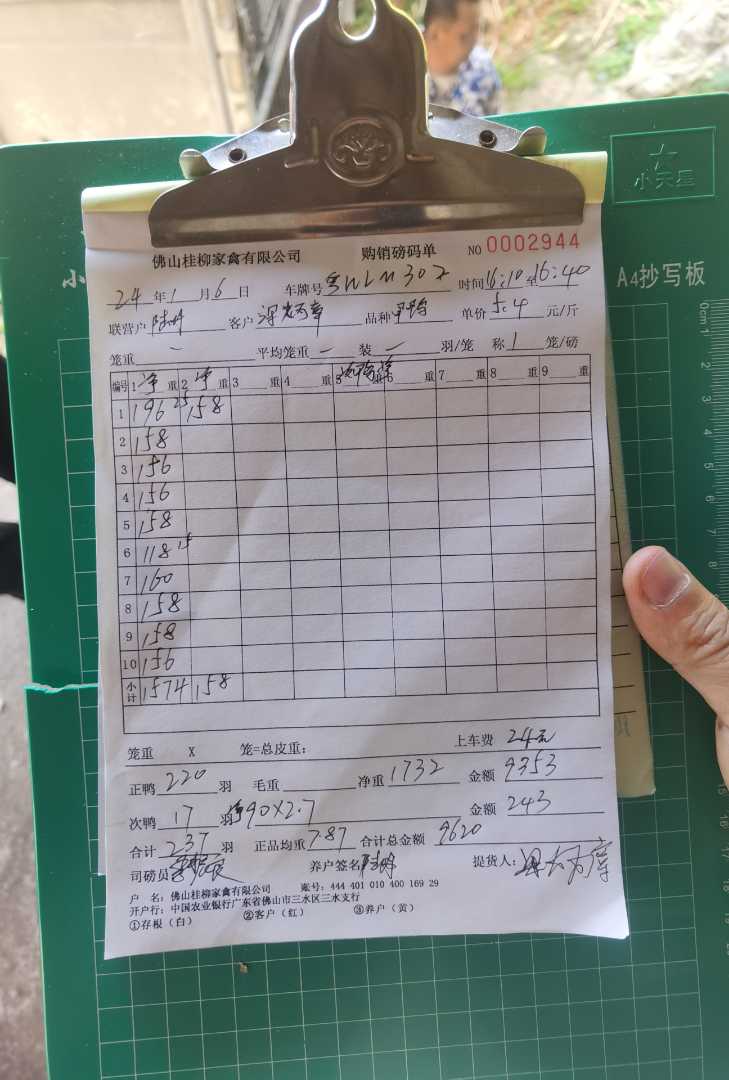 小天星
A4抄写板
佛山桂柳家禽有限公司 购销磅码单 NO 0002944
24年1月6日 车牌号 时间16:10至16:40
联营户 客户 品种 单价5.4元/斤
笼重 一 平均笼重 一 装 一 羽/笼 称 1 笼/磅
编号 1 净 重 2 净 重 3 重 4 重 5 重 6 重 7 重 8 重 9 重
1 196 25 158
2 158
3 156
4 156
5 158
6 118 15
7 160
8 158
9 158
10 156
小计 1574 158
笼重 X 笼=总皮重: 上车费 24元
正鸭 220 羽 毛重 净重 1732 金额 9353
次鸭 17 羽 净90×2.7 金额 243
合计 237 羽 正品均重 7.87 合计总金额 9620
司磅员 养户签名 提货人:
户 名: 佛山桂柳家禽有限公司 账号: 444 401 010 400 169 29
开户行: 中国农业银行广东省佛山市三水区三水支行
①存根(白) ②客户(红) ③养户(黄)